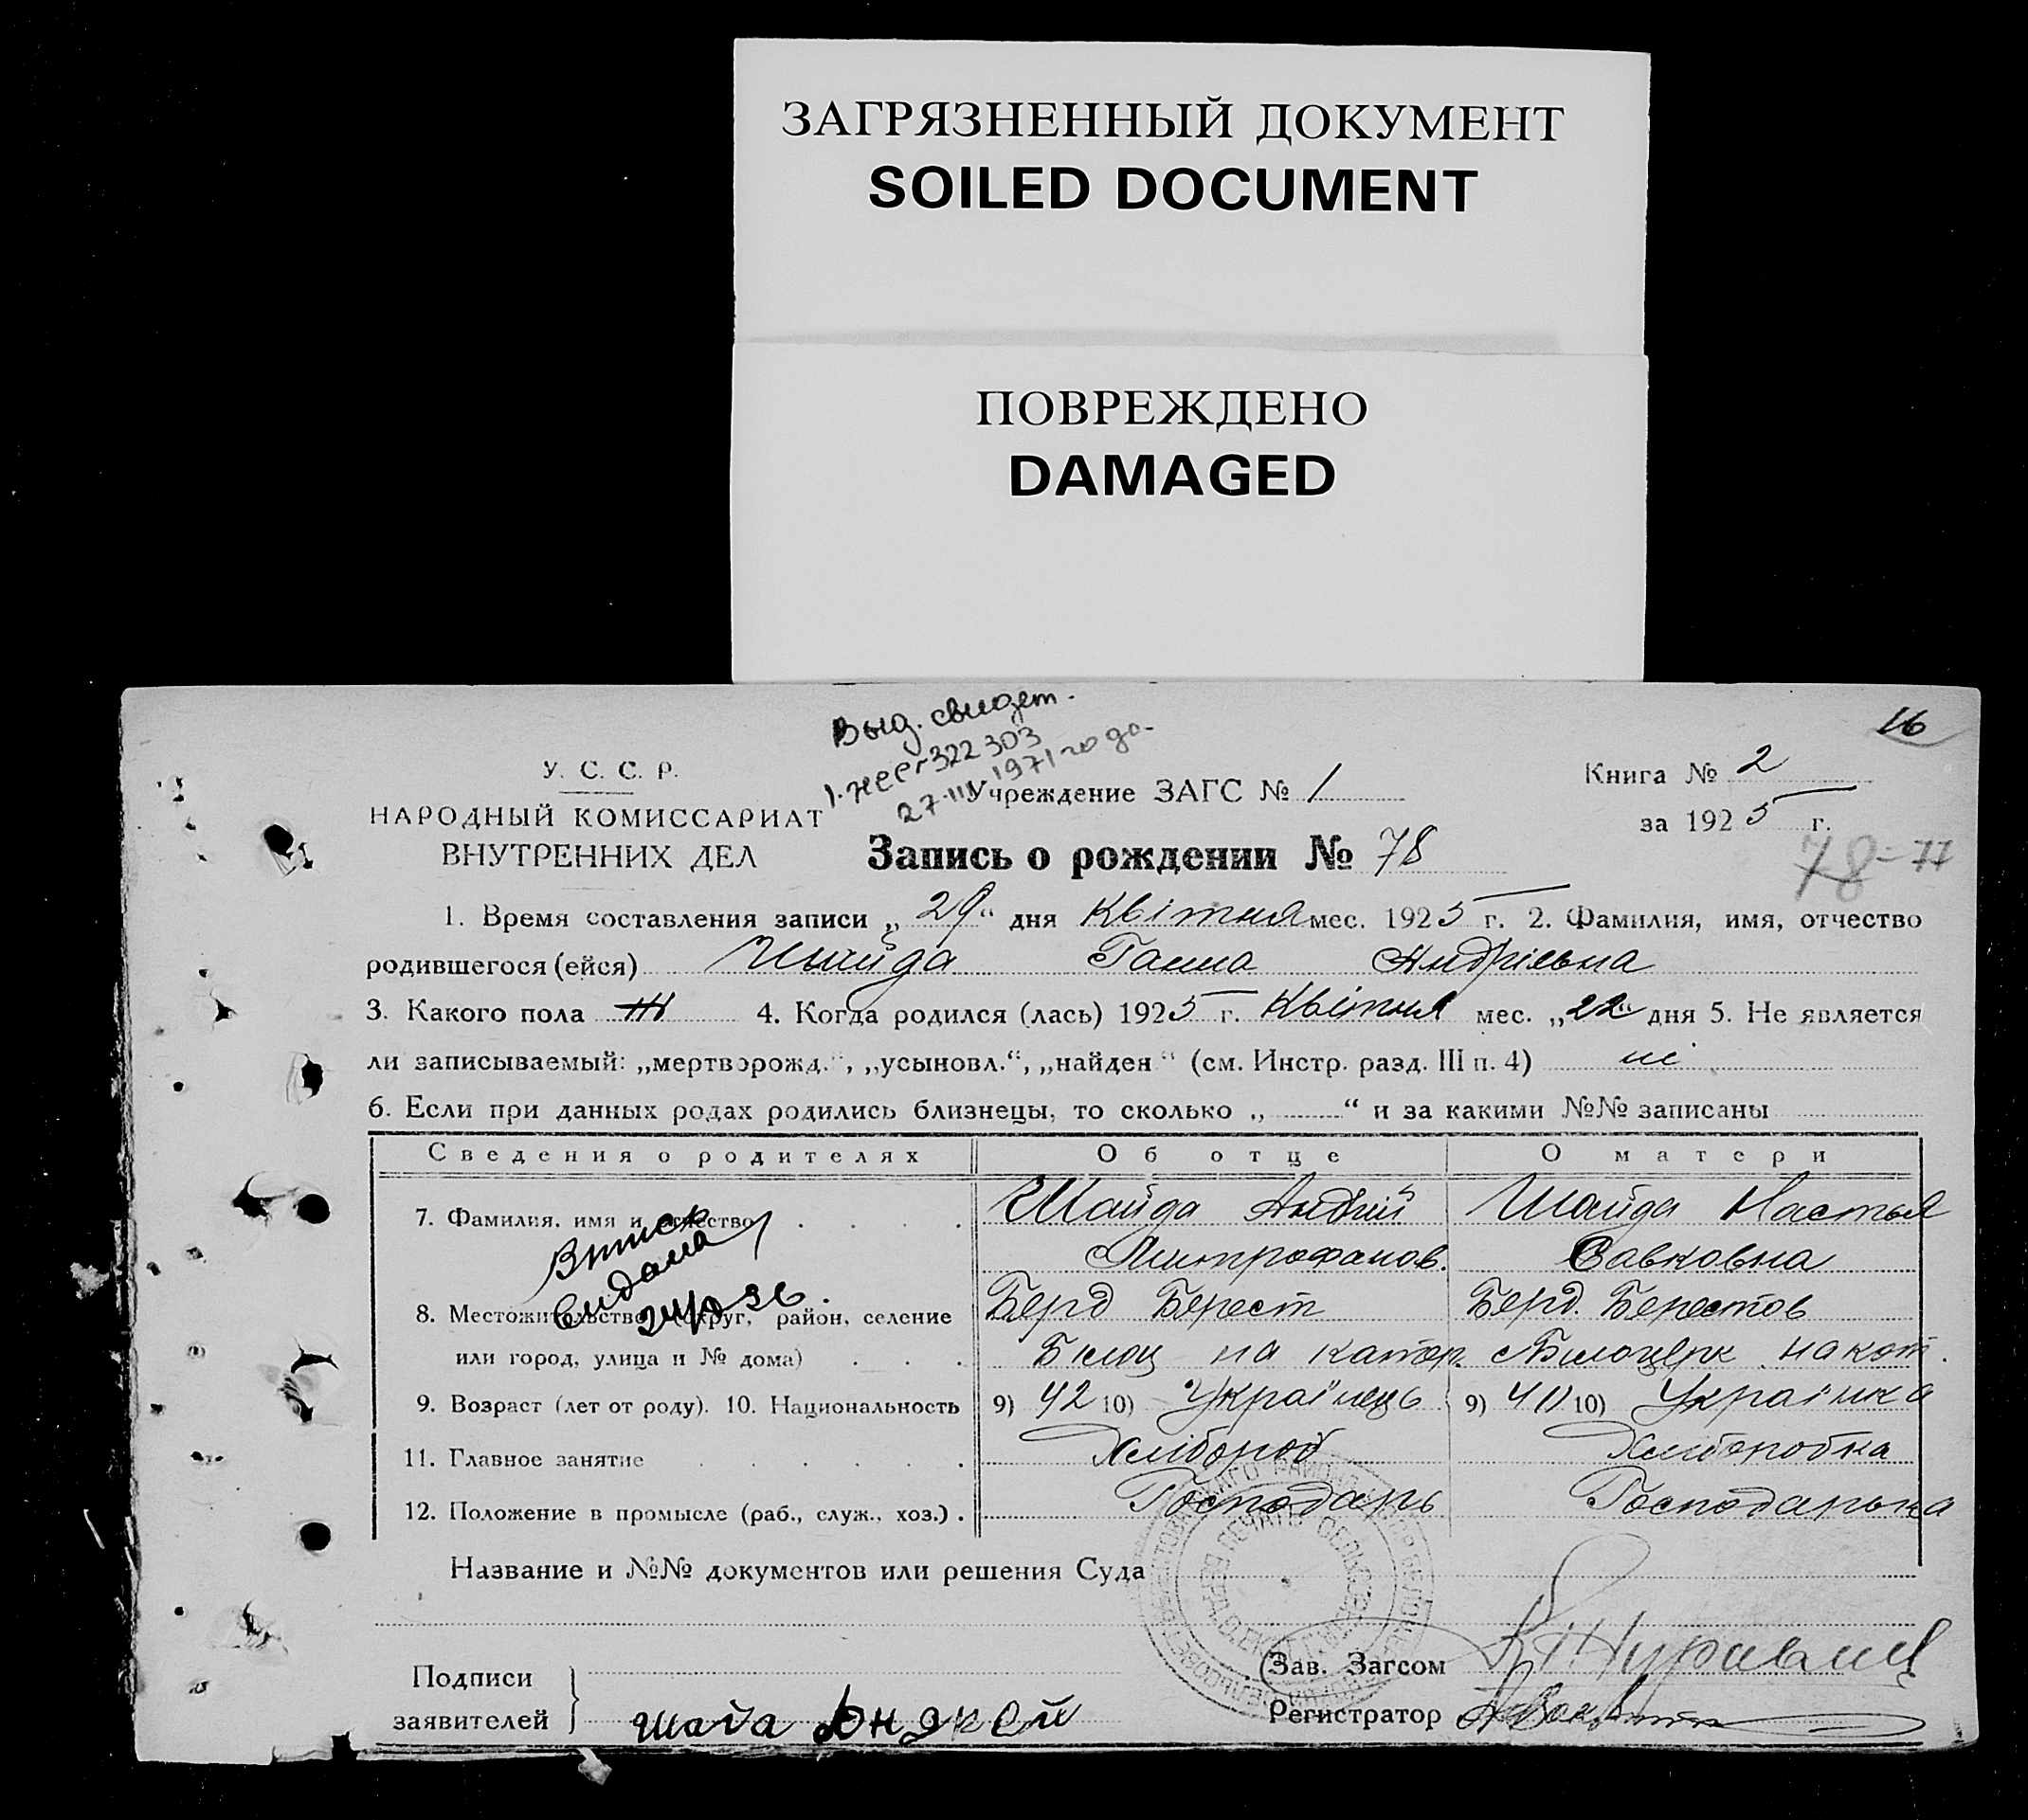 ЗАГРЯЗНЕННЫЙ ДОКУМЕНТ
SOILED DOCUMENT
ПОВРЕЖДЕНО
DAMAGED
16
Выд. свидет.
322303
27.III 1971 года.
У. С. С. Р.
НАРОДНЫЙ КОМИССАРИАТ
ВНУТРЕННИХ ДЕЛ
Учреждение ЗАГС № 1
Книга № 2
за 1925 г.
Запись о рождении № 78
78 - 77
1. Время составления записи „29“ дня Квітня мес. 1925 г. 2. Фамилия, имя, отчество
родившегося (ейся) Шайда Ганна Андріевна
3. Какого пола Ж 4. Когда родился (лась) 1925 г. Квітня мес. „22“ дня 5. Не является
ли записываемый: „мертворожд.“, „усыновл.“, „найден“ (см. Инстр. разд. III п. 4) ні
6. Если при данных родах родились близнецы, то сколько „ “ и за какими №№ записаны
Сведения о родителях Об отце О матери
7. Фамилия, имя и отчество Шайда Андрій Шайда Настья
Митрофанов. Савковна
Витяг
видана
8. Местожительство (округ, район, селение Берд Берест Берд. Берестов
или город, улица и № дома) на Білоцерк.
9. Возраст (лет от роду). 10. Национальность 9) 42 10) Українець 9) 40 10) Українка
11. Главное занятие Хлібороб Хліборобка
12. Положение в промысле (раб., служ., хоз.) Господарь Господарька
Название и №№ документов или решения Суда
Подписи
заявителей
шайда Андрей
Зав. Загсом
Регистратор